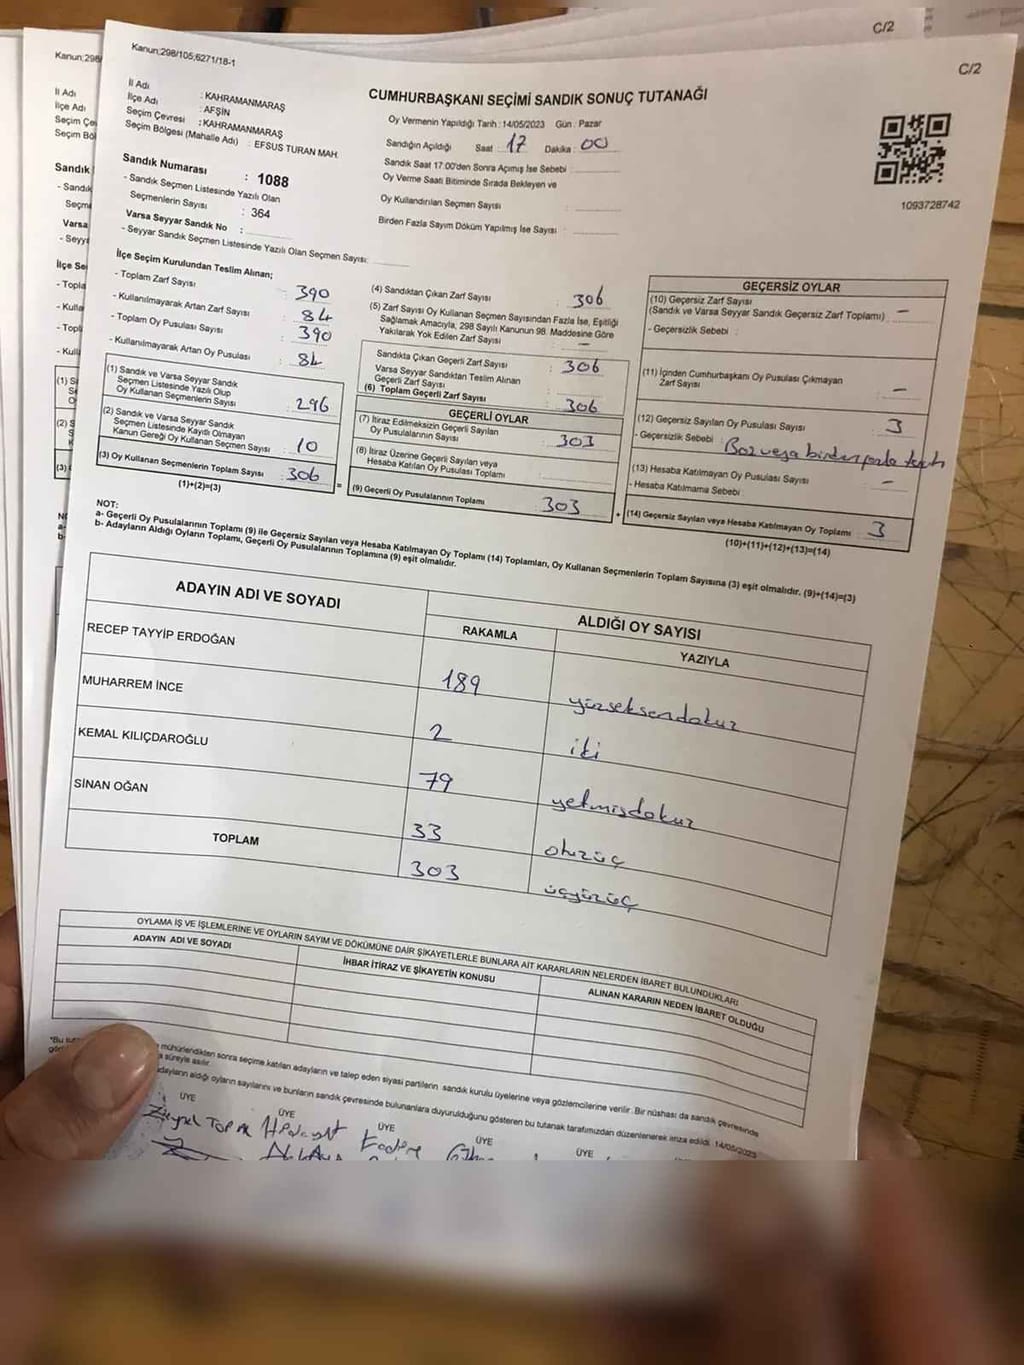 C/2
Kanun;298/105;6271/18-1
C/2
CUMHURBAŞKANI SEÇİMİ SANDIK SONUÇ TUTANAĞI
İl Adı : KAHRAMANMARAŞ
İlçe Adı : AFŞİN
Seçim Çevresi : KAHRAMANMARAŞ
Seçim Bölgesi (Mahalle Adı) : EFSUS TURAN MAH.
Sandık Numarası : 1088
- Sandık Seçmen Listesinde Yazılı Olan
Seçmenlerin Sayısı : 364
Varsa Seyyar Sandık No :
- Seyyar Sandık Seçmen Listesinde Yazılı Olan Seçmen Sayısı:
Oy Vermenin Yapıldığı Tarih : 14/05/2023 Gün : Pazar
Sandığın Açıldığı Saat : 17 Dakika : 00
Sandık Saat 17:00'den Sonra Açımış İse Sebebi :
Oy Verme Saati Bitiminde Sırada Bekleyen ve
Oy Kullandırılan Seçmen Sayısı :
Birden Fazla Sayım Döküm Yapılmış İse Sayısı :
1093728742
İlçe Seçim Kurulundan Teslim Alınan;
- Toplam Zarf Sayısı : 390
- Kullanılmayarak Artan Zarf Sayısı : 84
- Toplam Oy Pusulası Sayısı : 390
- Kullanılmayarak Artan Oy Pusulası : 84
(1) Sandık ve Varsa Seyyar Sandık
Seçmen Listesinde Yazılı Olup
Oy Kullanan Seçmenlerin Sayısı : 296
(2) Sandık ve Varsa Seyyar Sandık
Seçmen Listesinde Kayıtlı Olmayan
Kanun Gereği Oy Kullanan Seçmen Sayısı : 10
(3) Oy Kullanan Seçmenlerin Toplam Sayısı : 306
(1)+(2)=(3)
(4) Sandıktan Çıkan Zarf Sayısı : 306
(5) Zarf Sayısı Oy Kullanan Seçmen Sayısından Fazla İse, Eşitliği
Sağlamak Amacıyla, 298 Sayılı Kanunun 98. Maddesine Göre
Yakılarak Yok Edilen Zarf Sayısı : -
Sandıkta Çıkan Geçerli Zarf Sayısı : 306
Varsa Seyyar Sandıktan Teslim Alınan
Geçerli Zarf Sayısı :
(6) Toplam Geçerli Zarf Sayısı : 306
GEÇERLİ OYLAR
(7) İtiraz Edilmeksizin Geçerli Sayılan
Oy Pusulalarının Sayısı : 303
(8) İtiraz Üzerine Geçerli Sayılan veya
Hesaba Katılan Oy Pusulası Toplamı :
= (9) Geçerli Oy Pusulalarının Toplamı : 303
GEÇERSİZ OYLAR
(10) Geçersiz Zarf Sayısı
(Sandık ve Varsa Seyyar Sandık Geçersiz Zarf Toplamı) : -
- Geçersizlik Sebebi :
(11) İçinden Cumhurbaşkanı Oy Pusulası Çıkmayan
Zarf Sayısı : -
(12) Geçersiz Sayılan Oy Pusulası Sayısı : 3
- Geçersizlik Sebebi : Boz veya birden fazla
(13) Hesaba Katılmayan Oy Pusulası Sayısı : -
- Hesaba Katılmama Sebebi :
+ (14) Geçersiz Sayılan veya Hesaba Katılmayan Oy Toplamı : 3
(10)+(11)+(12)+(13)=(14)
NOT:
a- Geçerli Oy Pusulalarının Toplamı (9) ile Geçersiz Sayılan veya Hesaba Katılmayan Oy Toplamı (14) Toplamları, Oy Kullanan Seçmenlerin Toplam Sayısına (3) eşit olmalıdır. (9)+(14)=(3)
b- Adayların Aldığı Oyların Toplamı, Geçerli Oy Pusulalarının Toplamına (9) eşit olmalıdır.
ADAYIN ADI VE SOYADI
ALDIĞI OY SAYISI
RAKAMLA YAZIYLA
RECEP TAYYİP ERDOĞAN 189 yüzseksendokuz
MUHARREM İNCE 2 iki
KEMAL KILIÇDAROĞLU 79 yetmişdokuz
SİNAN OĞAN 33 otuzüç
TOPLAM 303 üçyüzüç
OYLAMA İŞ VE İŞLEMLERİNE VE OYLARIN SAYIM VE DÖKÜMÜNE DAİR ŞİKAYETLERLE BUNLARA AİT KARARLARIN NELERDEN İBARET BULUNDUKLARI
ADAYIN ADI VE SOYADI İHBAR İTİRAZ VE ŞİKAYETİN KONUSU ALINAN KARARIN NEDEN İBARET OLDUĞU
mühürlendikten sonra seçime katılan adayların ve talep eden siyasi partilerin sandık kurulu üyelerine veya gözlemcilerine verilir. Bir nüshası da sandık çevresinde
süreyle asılır.
adayların aldığı oyların sayılarını ve bunların sandık çevresinde bulunanlara duyurulduğunu gösteren bu tutanak tarafımızdan düzenlenerek imza edildi. 14/05/2023
ÜYE ÜYE ÜYE ÜYE ÜYE